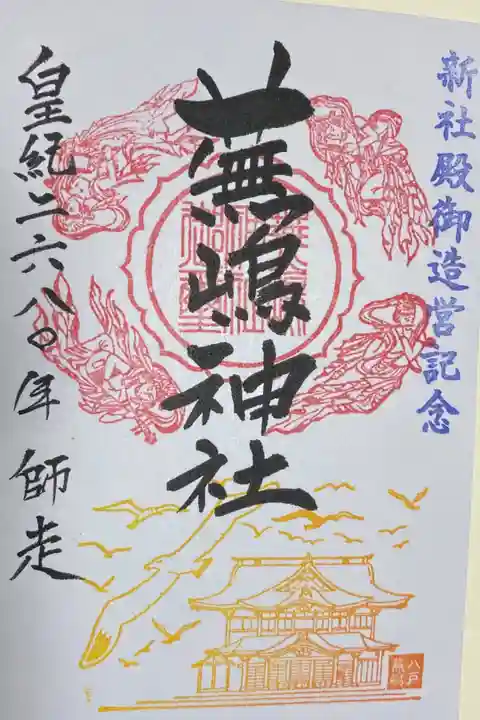 新社殿御造営記念
蕪嶋神社
皇紀二六八〇年 師走
八戸
蕪嶋